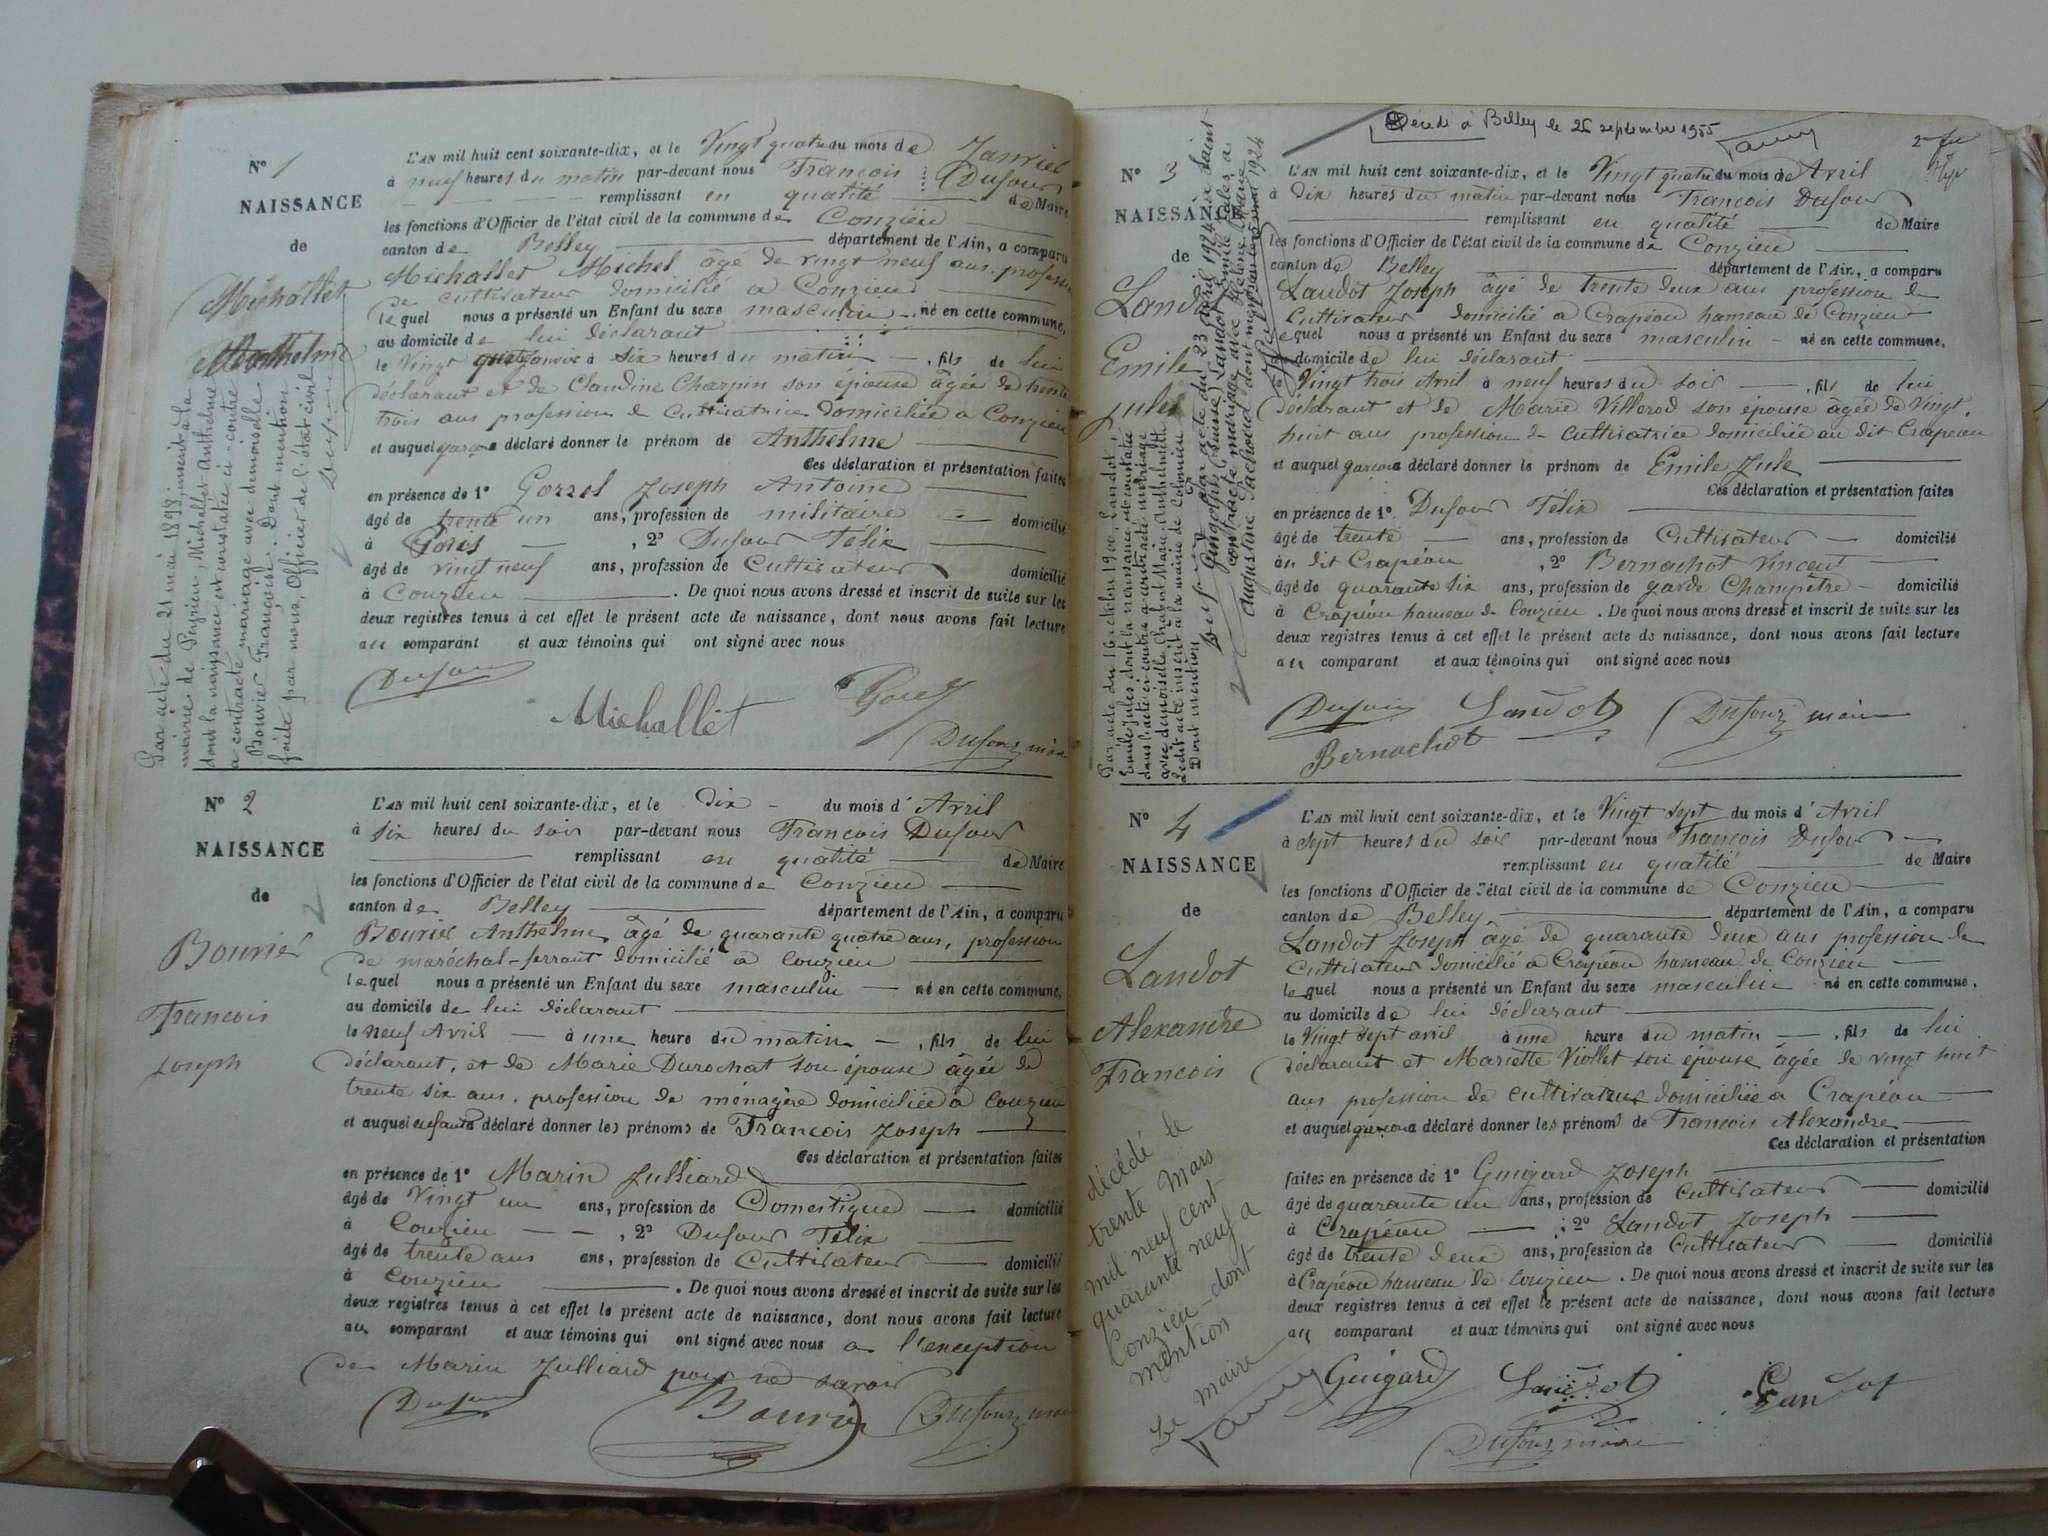 N° 1
NAISSANCE
de
Michallet
Anthelme
Par acte du 21 mai 1898, inscrit à la
mairie de Peyrieu, Michallet Anthelme
dont la naissance est constatée ci-contre
a contracté mariage avec demoiselle
Bouvier Françoise. Dont mention
faite par nous, Officier de l'état civil
L'AN mil huit cent soixante-dix, et le Vingt quatre du mois de Janvier
à neuf heures du matin par-devant nous François Dufour
remplissant en qualité de Maire
les fonctions d'Officier de l'état civil de la commune de Conzieu
canton de Belley département de l'Ain, a comparu
Michallet Michel âgé de vingt neuf ans, profession
de cultivateur domicilié a Conzieu
lequel nous a présenté un Enfant du sexe masculin né en cette commune,
au domicile de lui déclarant
le Vingt quatre à six heures du matin, fils de lui
déclarant et de Claudine Charpin son épouse âgée de trente
trois ans profession de Cultivatrice domiciliée a Conzieu
et auquel garçon a déclaré donner le prénom de Anthelme
Ces déclaration et présentation faites
en présence de 1° Joseph Antoine
âgé de trente un ans, profession de militaire domicilié
à , 2° Dufour Félix
âgé de vingt neuf ans, profession de Cultivateur domicilié
à Conzieu . De quoi nous avons dressé et inscrit de suite sur les
deux registres tenus à cet effet le présent acte de naissance, dont nous avons fait lecture
au comparant et aux témoins qui ont signé avec nous
Dufour
Michallet
Dufour maire
N° 2
NAISSANCE
de
Bouvier
Francois
Joseph
L'AN mil huit cent soixante-dix, et le dix du mois d'Avril
à six heures du soir par-devant nous François Dufour
remplissant en qualité de Maire
les fonctions d'Officier de l'état civil de la commune de Conzieu
canton de Belley département de l'Ain, a comparu
Bouvier Anthelme âgé de quarante quatre ans, profession
de maréchal-ferrant domicilié a Conzieu
lequel nous a présenté un Enfant du sexe masculin né en cette commune,
au domicile de lui déclarant
le neuf Avril à une heure du matin, fils de lui
déclarant, et de Marie Durochat son épouse âgée de
trente six ans. profession de ménagère domiciliée a Conzieu
et auquel enfant a déclaré donner les prénoms de François Joseph
Ces déclaration et présentation faites
en présence de 1° Marin Julliard
âgé de Vingt un ans, profession de Domestique domicilié
à Conzieu , 2° Dufour Félix
âgé de trente ans ans, profession de Cultivateur domicilié
à Conzieu . De quoi nous avons dressé et inscrit de suite sur les
deux registres tenus à cet effet le présent acte de naissance, dont nous avons fait lecture
au comparant et aux témoins qui ont signé avec nous a l'exception
de Marin Julliard pour ne savoir
Dufour
Bouvier
Dufour maire
Décédé à Belley le 26 septembre 1955
N° 3
NAISSANCE
de
Landot
Emile
Jules
Par acte du 16 octobre 1900, Landot,
Emile Jules dont la naissance est constatée
dans l'acte ci-contre a contracté mariage
avec demoiselle Chabert Marie Anthelmette
Ledit acte inscrit à la mairie de Colomieu
Dont mention
Par acte du 23 avril 1924 à Saint
Gingolph (Suisse) Landot Emile Jules, a
contracté mariage avec Hélène Marie
Augustine Pachoud dont mention 1924
L'AN mil huit cent soixante-dix, et le Vingt quatre du mois de Avril
à dix heures du matin par-devant nous François Dufour
remplissant en qualité de Maire
les fonctions d'Officier de l'état civil de la commune de Conzieu
canton de Belley département de l'Ain, a comparu
Landot Joseph âgé de trente deux ans profession de
Cultivateur domicilié a Crapéou hameau de Conzieu
lequel nous a présenté un Enfant du sexe masculin né en cette commune,
au domicile de lui déclarant
Vingt trois Avril à neuf heures du soir, fils de lui
déclarant et de Marie Villerod son épouse âgée de Vingt
huit ans profession de cultivatrice domiciliée au dit Crapéou
et auquel garçon a déclaré donner le prénom de Emile Jule
Ces déclaration et présentation faites
en présence de 1°. Dufour Félix
âgé de trente ans, profession de Cultivateur domicilié
au dit Crapéou , 2° Bernachot Vincent
âgé de quarante six ans, profession de garde Champêtre domicilié
à Crapéou hameau de Conzieu . De quoi nous avons dressé et inscrit de suite sur les
deux registres tenus à cet effet le présent acte de naissance, dont nous avons fait lecture
au comparant et aux témoins qui ont signé avec nous
Dufour Landot Dufour maire
Bernachot
N° 4
NAISSANCE
de
Landot
Alexandre
Francois
décédé le
trente Mars
mil neuf cent
quarante neuf a
Conzieu - dont
mention
Le maire
L'AN mil huit cent soixante-dix, et le Vingt sept du mois d'Avril
à sept heures du soir par-devant nous François Dufour
remplissant en qualité de Maire
les fonctions d'Officier de l'état civil de la commune de Conzieu
canton de Belley département de l'Ain, a comparu
Landot Joseph âgé de quarante deux ans profession de
Cultivateur domicilié a Crapéou hameau de Conzieu
lequel nous a présenté un Enfant du sexe masculin né en cette commune,
au domicile de lui déclarant
le Vingt sept avril à une heure du matin, fils de lui
déclarant et Mariette Viollet son épouse âgée de vingt huit
ans profession de cultivateur domiciliée a Crapéou
et auquel garçon a déclaré donner les prénoms de François Alexandre
Ces déclaration et présentation
faites en présence de 1° Guigard Joseph
âgé de quarante un ans, profession de Cultivateur domicilié
à Crapéou , 2° Landot Joseph
âgé de trente deux ans, profession de Cultivateur domicilié
à Crapéou hameau de Conzieu . De quoi nous avons dressé et inscrit de suite sur les
deux registres tenus à cet effet le présent acte de naissance, dont nous avons fait lecture
au comparant et aux témoins qui ont signé avec nous
Guigard Landot Landot
Dufour maire